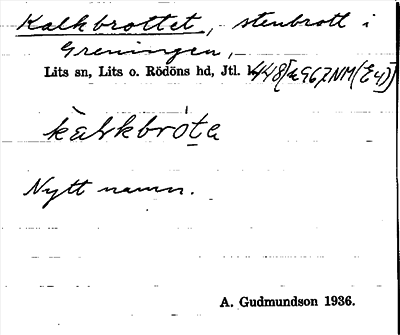 Kalkbrottet, stenbrott i
Greningen,
Lits sn, Lits o. Rödöns hd, Jtl. 448[a967NM(Ey)]
kàlkbrót̲a
Nytt namn.
A. Gudmundson 1936.